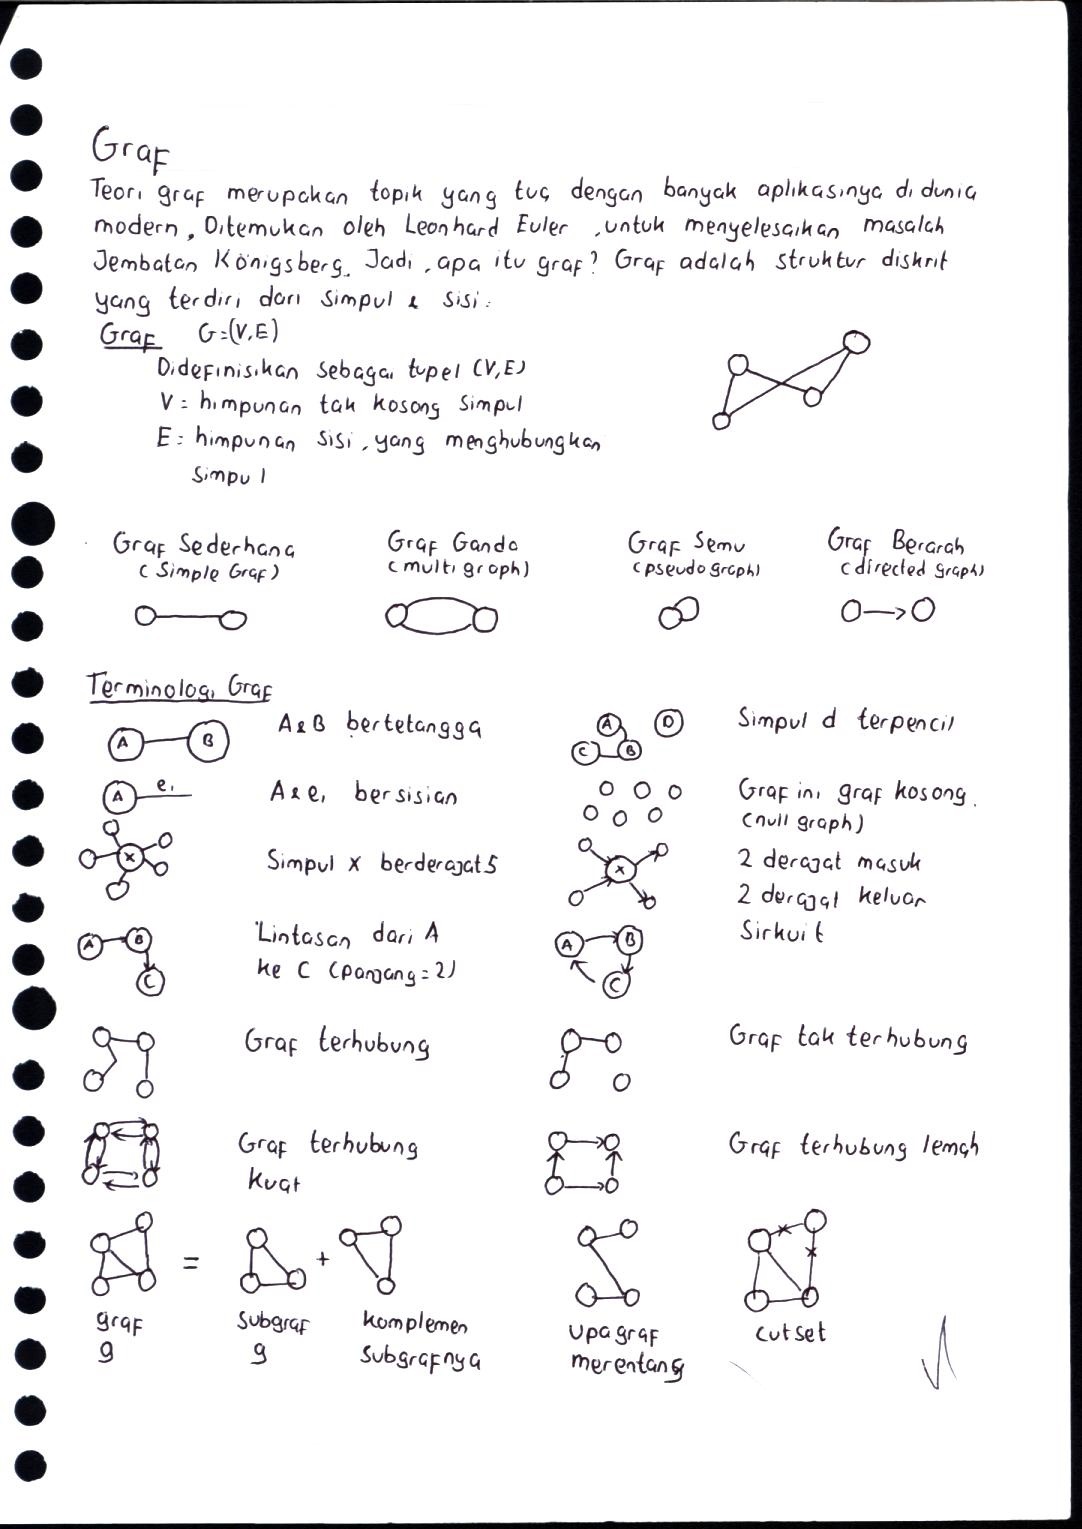 Graf
Teori graf merupakan topik yang tua dengan banyak aplikasinya di dunia
modern, Ditemukan oleh Leonhard Euler, untuk menyelesaikan masalah
Jembatan Königsberg. Jadi, apa itu graf? Graf adalah struktur diskrit
yang terdiri dari simpul & sisi.
Graf G=(V,E)
Didefinisikan sebagai tupel (V,E)
V = himpunan tak kosong simpul
E = himpunan sisi, yang menghubungkan
simpul
Graf Sederhana Graf Ganda Graf Semu Graf Berarah
(Simple Graf) (multi graph) (pseudo graph) (directed graph)
Terminologi Graf
A B A & B bertetangga A D C B Simpul d terpencil
A e₁ A & e₁ bersisian Graf ini graf kosong.
(null graph)
X Simpul X berderajat 5 X 2 derajat masuk
2 derajat keluar
A B C Lintasan dari A A B C Sirkuit
ke C (panjang = 2)
Graf terhubung Graf tak terhubung
Graf terhubung Graf terhubung lemah
kuat
= +
graf subgraf komplemen upagraf cutset
g g subgrafnya merentang